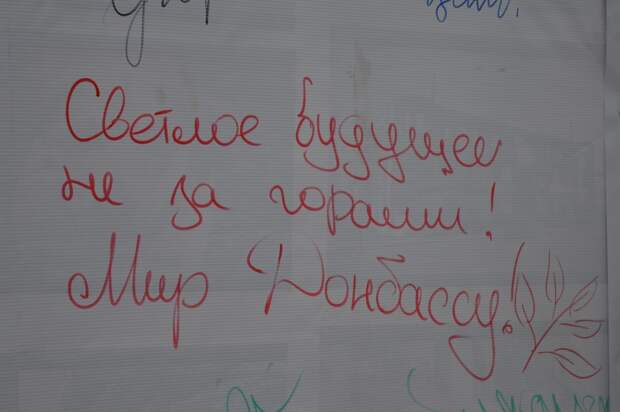 Светлое будущее
не за горами!
Мир Донбассу!